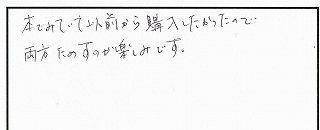 本でみていて以前から購入したかったので
両方ためすのが楽しみです。